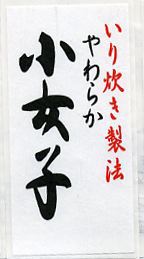 いり炊き製法
やわらか
小女子